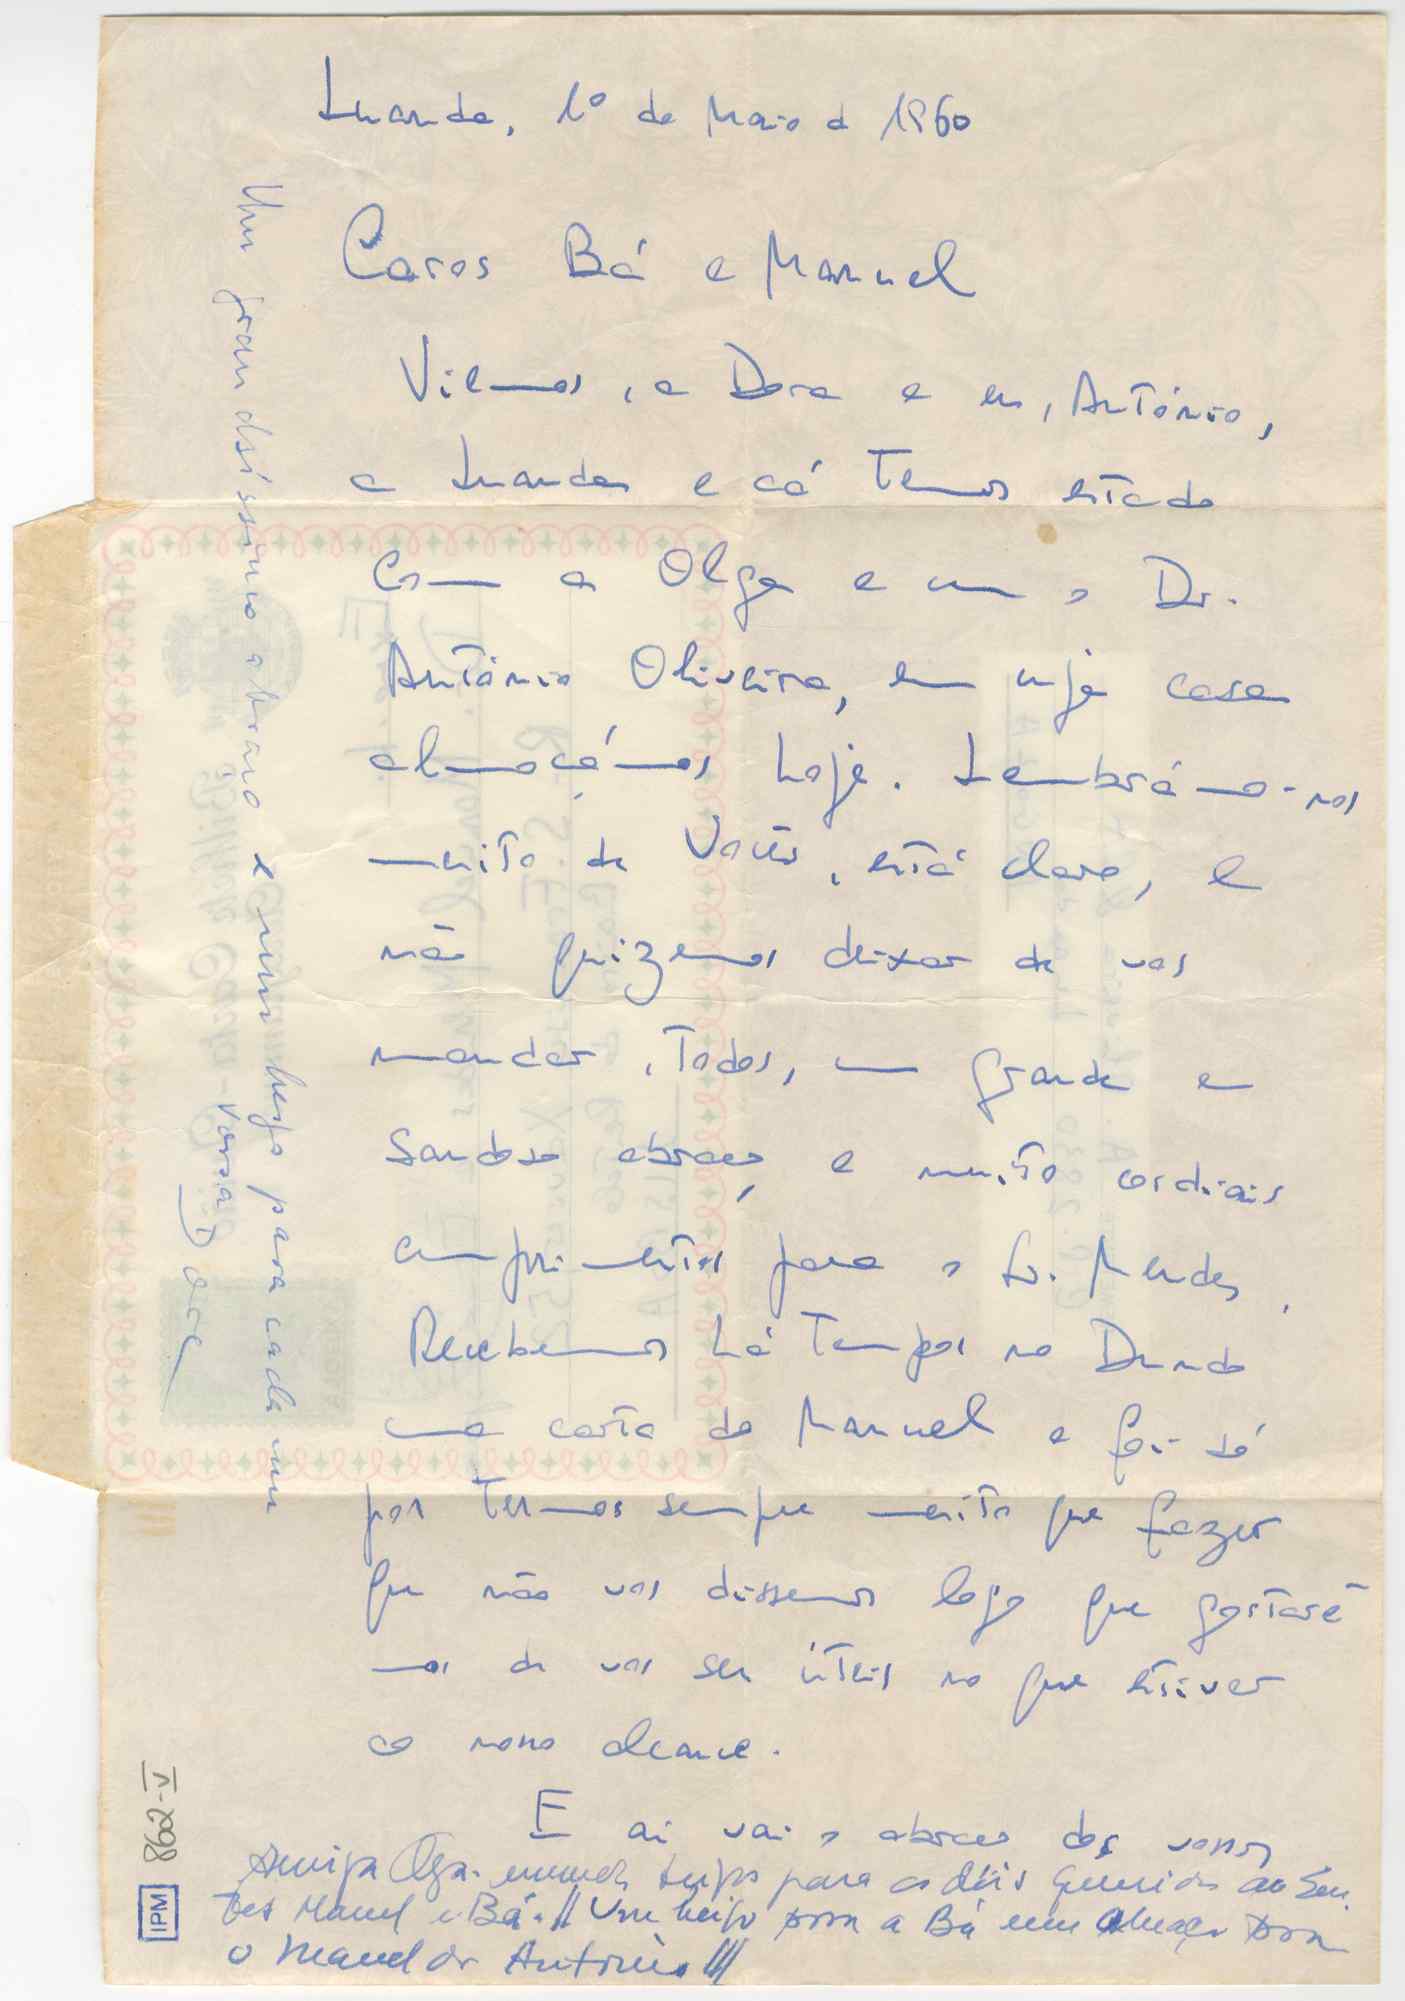 Luanda, 1º de Maio d 1960
Caros Bá e Manuel
Viemos, a Dora e eu, António,
a Luanda e cá temos estado
com a Olga e com o Dr.
António Oliveira, em cuja casa
almoçámos hoje. Lembrámo-nos
muito de Vocês, está claro, e
não quizemos deixar de vos
mandar, todos, um grande e
saudoso abraço e muito cordiais
cumprimentos para o Sr. Mendes.
Recebemos há tempos no Dundo
uma carta do Manuel e foi só
por termos sempre muito que fazer
que não vos dissemos logo que gostaría
mos de vos ser úteis no que estiver
ao nosso alcance.
E aí vai o abraço dos vossos
Amiga Olga. beijos para os dois queridos
Manel e Bá. !! Um beijo para a Bá e um abraço para
o Manel do António !!!
Um grandissíssimo abraço e um beijo para cada um
Vossa Dora
IPM 862-V